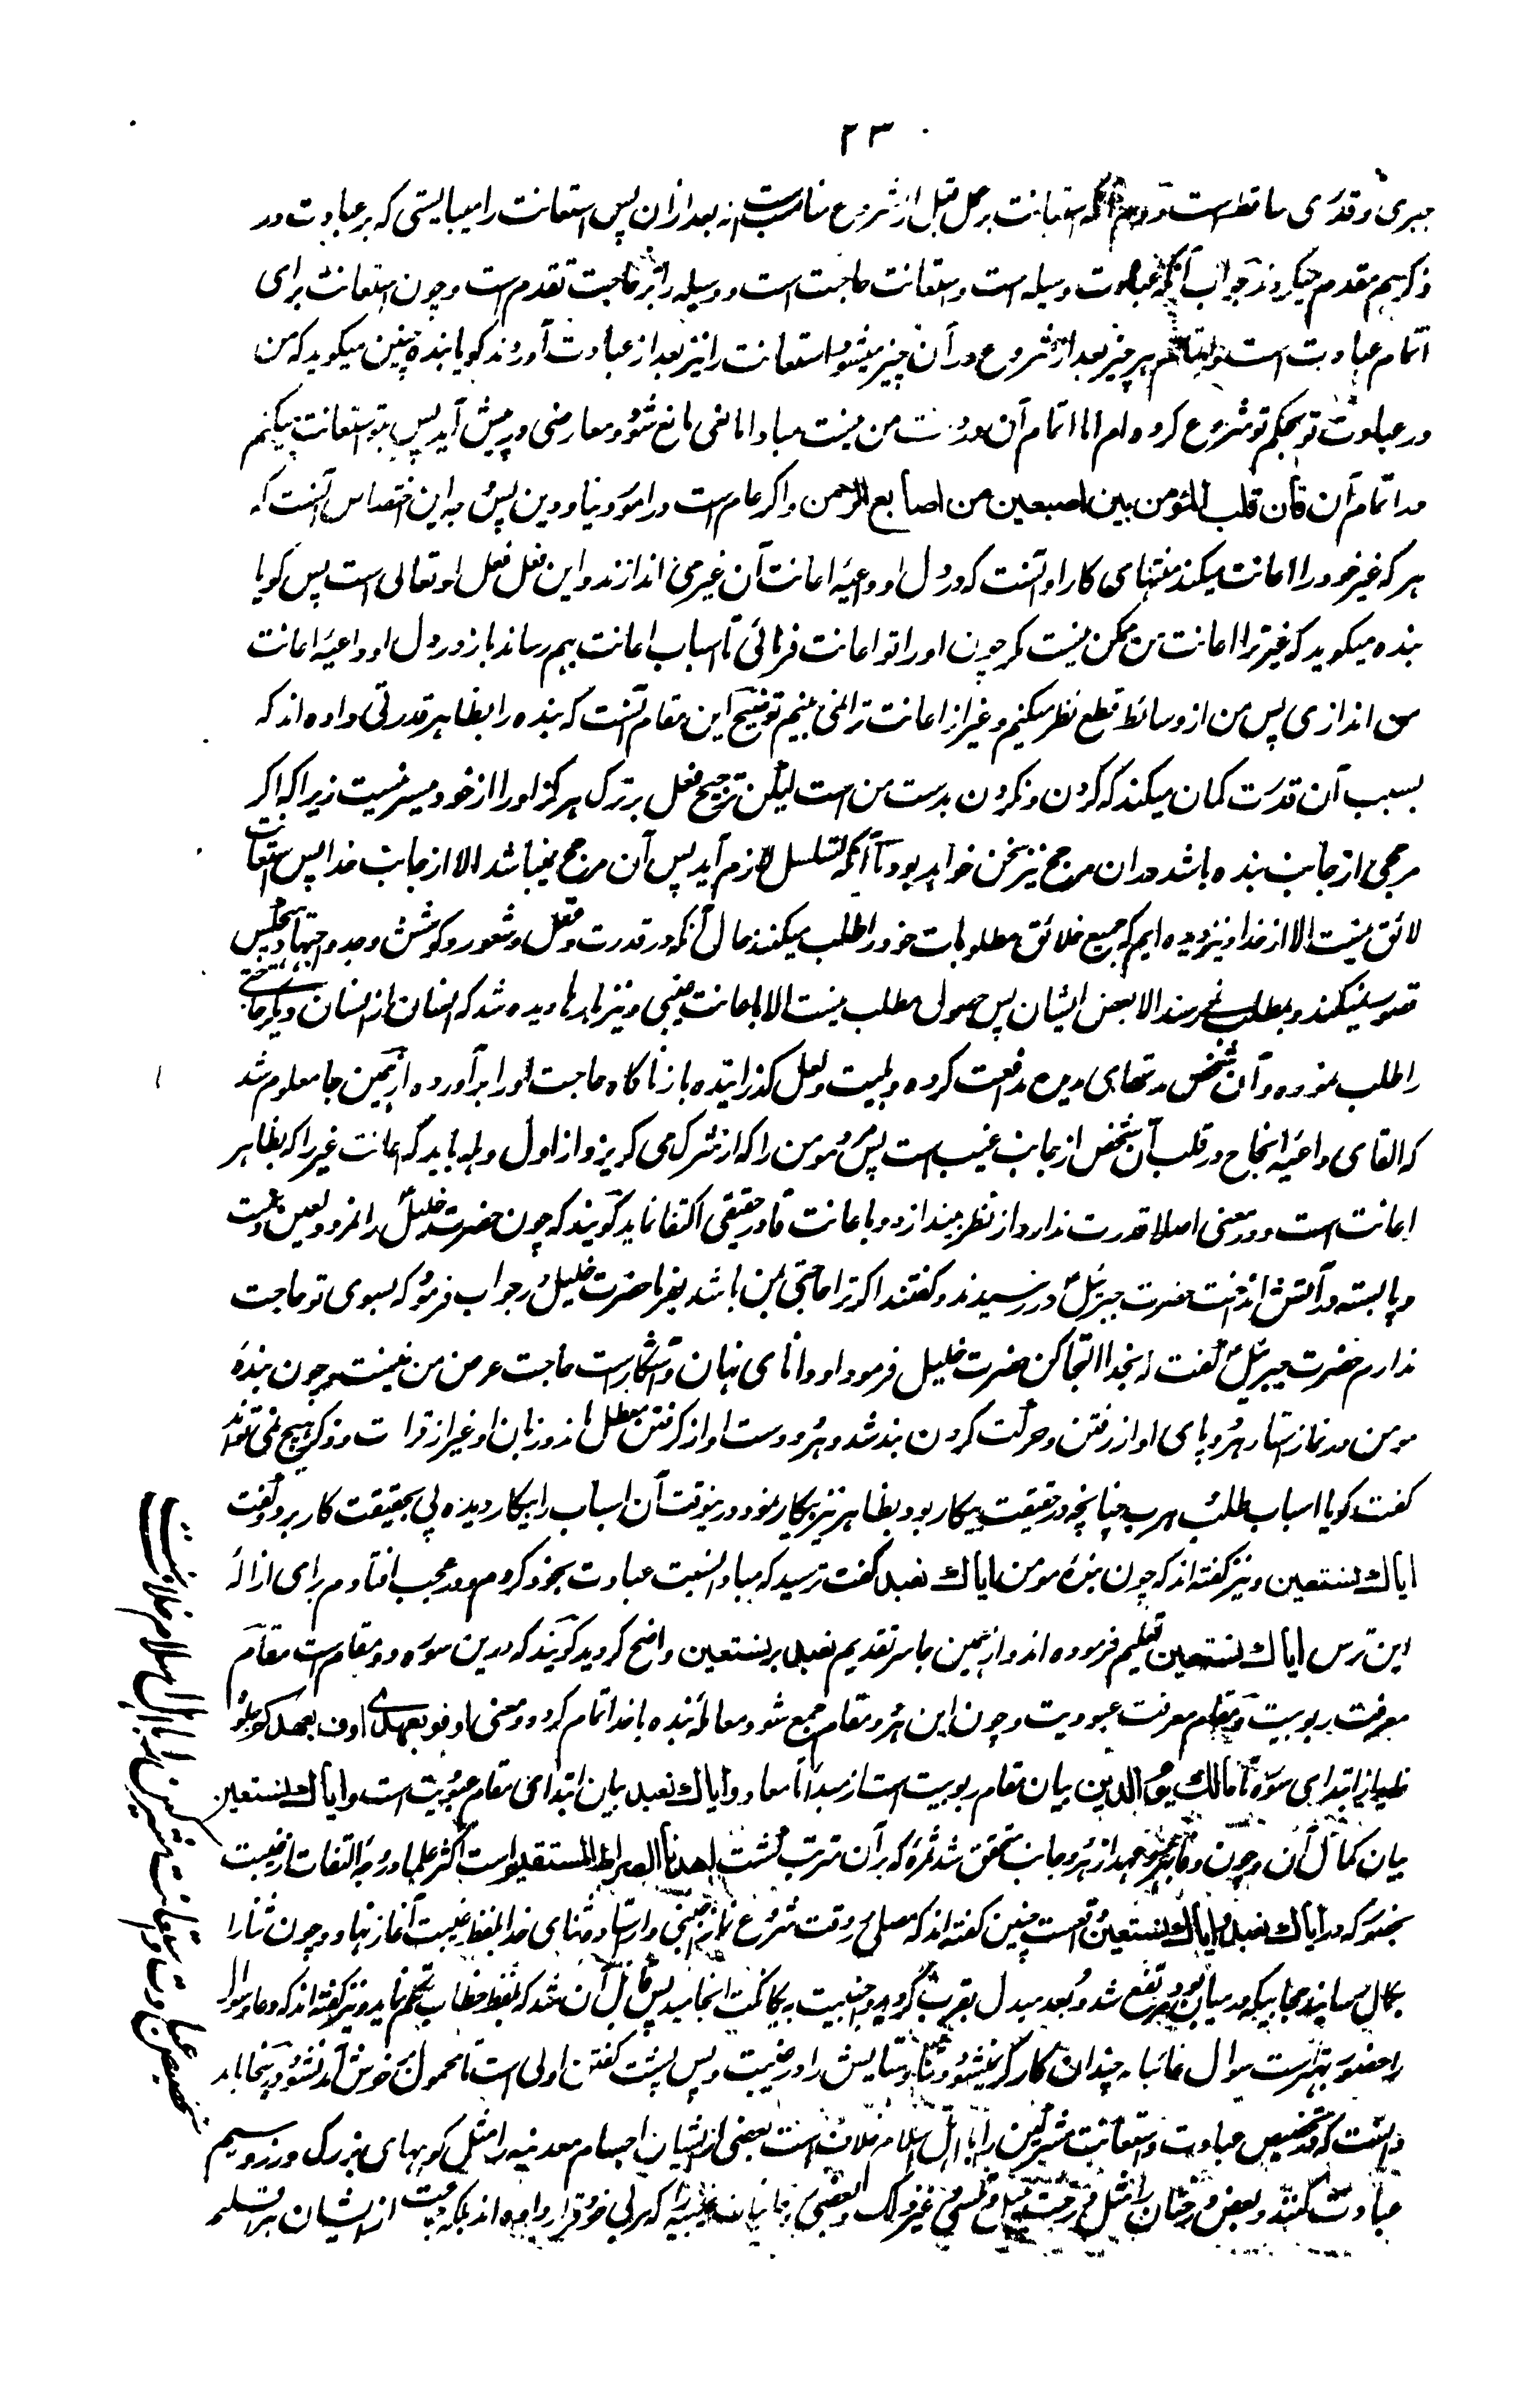 ۲۳
جبری و قدری ساقط است و دوم آنکه استعانت بر عمل قبل از شروع مناسب است نه بعد ازان پس استعانت را میبایستی که بر عبادت در
ذکر هم مقدم میکردند جواب آنکه عبادت وسیله است و استعانت حاجت است و وسیله را بر حاجت تقدم است و چون استعانت برای
اتمام عبادت است و اتمام هر چیز بعد از شروع در آن چیز میشود استعانت را نیز بعد از عبادت آوردند گویا بنده چنین میگوید که من
در عبادت تو بحکم تو شروع کرده ام اما اتمام آن در دست من نیست مبادا مانعی مانع شود و معارضی در پیش آید پس بتو استعانت میکنم
در اتمام آن فان قلب المؤمن بین اصبعین من اصابع الرحمن و اگر عام است در امور دنیا و دین پس وجه این اختصاص آنست که
هر که غیر خود را اعانت میکند منتهای کار او آنست که در دل او داعیه اعانت آن غیر می اندازند و این فعل فعل او تعالی است پس گویا
بنده میگوید که غیر ترا اعانت من ممکن نیست مگر چون او را تو اعانت فرمائی تا اسباب اعانت بهم رساند باز در دل او داعیه اعانت
من اندازی پس من از وسائط قطع نظر میکنیم و غیر از اعانت ترا نمی بینم توضیح این مقام آنست که بنده را بظاهر قدرتی داده اند که
بسبب آن قدرت گمان میکند که کردن و نکردن بدست من است لیکن ترجیح فعل بر ترک هرگز او را از خود میسر نیست زیرا که اگر
مرجحی از جانب بنده باشد در ان مرجح نیز سخن خواهد بود تا آنکه تسلسل لازم آید پس آن مرجح نمیباشد الا از جانب خدا پس استعانت
لائق نیست الا از خدا و نیز دیده ایم که جمیع خلائق مطلوبات خود را طلب میکنند حال آنکه در قدرت و عقل و شعور و کوشش و جد و اجتهاد هیچکس
قصور نمیکند و بمطلب نمیرسند الا بعض ایشان پس حصول مطلب نیست الا باعانت غیبی و نیز بارها دیده شد که انسان از انسان دیگر حاجتی
را طلب نموده و آن شخص مدتهای مدید مدافعت کرده و بلیت و لعل گذرانیده باز ناگاه حاجت او را برآورده ازینجا معلوم شد
که القای داعیه انجاح در قلب آن شخص از جانب غیب است پس مرد مومن را که از شرک می گریزد از اول وهله باید که اعانت غیر را که بظاهر
اعانت است و در معنی اصلا قدرت ندارد از نظر بیندازد و باعانت قادر حقیقی اکتفا نماید گویند که چون حضرت خلیل را نمرود لعین دست
و پا بسته در آتش انداخت حضرت جبرئیل در رسیدند و گفتند اگر ترا حاجتی بمن باشد بفرما حضرت خلیل در جواب فرمود که بسوی تو حاجت
ندارم حضرت جبرئیل گفت که بخدا التجا کن حضرت خلیل فرمود او دانای نهان و آشکار است حاجت عرض من نیست و چون بنده
مومن در نماز ستاد هر دو پای او از رفتن و حرکت کردن بند شد و هر دو دست او از گرفتن معطل ماند و زبان او غیر از قراءت و ذکر هیچ نمی تواند
گفت گویا اسباب طلب و هرب چنانچه در حقیقت بیکار بود بظاهر نیز بیکار نمود درینوقت آن اسباب را بیکار دیده پی بحقیقت کار برد و گفت
ایاك نستعین و نیز گفته اند که چون بنده مومن ایاك نعبد گفت ترسید که مبادا نسبت عبادت بخود کردم و در عجب افتادم برای ازاله
این ترس ایاك نستعین تعلیم فرموده اند و از همین جا سر تقدیم نعبد بر نستعین واضح گردید گویند که درین سوره دو مقام است مقام
معرفت ربوبیت و مقام معرفت عبودیت و چون این هر دو مقام جمع شود معامله بنده با خدا تمام گردد و معنی اوفوا بعهدی اوف بعهدکم جلوه
نماید از ابتدای سوره تا مالك یوم الدین بیان مقام ربوبیت است از مبدأ تا معاد و ایاك نعبد بیان ابتدای مقام عبودیت است و ایاك نستعین
بیان کمال آن و چون وفا بهر دو عهد از هر دو جانب متحقق شد ثمره که بر آن مترتب گشت اهدنا الصراط المستقیم است اکثر علما در وجه التفات از غیبت
بحضور که در ایاك نعبد و ایاك نستعین واقعست چنین گفته اند که مصلی در وقت شروع نماز اجنبی وار ستاد و ثنای خدا بلفظ غیبت آغاز نهاد و چون ثنا را
بکمال رسانید حجابیکه در میان بود مرتفع شد و بعد مبدل بقرب گردید و اجنبیت به یگانگت انجامید پس قابل آن شد که بلفظ خطاب تکلم نماید و نیز گفته اند که دعا و سوال
را حضور بهتر است سوال غائبانه چندان کارگر نمیشود و ثنا و ستایش را در غیبت و پس پشت گفتن اولی است تا محمول بر خوش آمد نشود در اینجا باید
دانست که در تخصیص عبادت و استعانت مشرکین را با اهل اسلام خلاف است بعضی از ایشان اجسام معدنیه را مثل کوههای بزرگ و زر و سیم
عبادت کنند و بعض درختان را مثل درخت پیپل و تلسی و غیر ذلک و بعضی روحانیات غیبیه را که مربی خود قرار داده اند بلکه از ایشان هر قسم
تخصیص عبادت و استعانت مشرکین را با اهل اسلام خلاف است